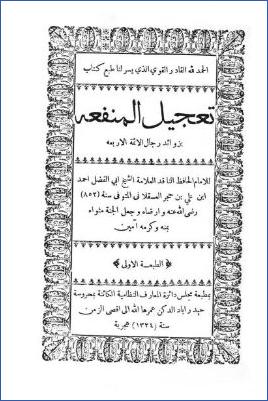 الحمد لله القادر القوي الذي يسر لنا طبع كتاب
تعجيل المنفعه
بزوائد رجال الائمة الاربعه
للامام الحافظ الناقد العلامة الشيخ ابي الفضل احمد
ابن علي بن حجر العسقلاني المتوفى سنة (٨٥٢)
رضى الله عنه وارضاه وجعل الجنة مثواه
بمنه وكرمه آمين
الطبعة الاولى
بمطبعة مجلس دائرة المعارف النظامية الكائنة بمحروسة
حيدر اباد الدكن عمرها الله الى اقصى الزمن
سنة (١٣٢٤) هجرية